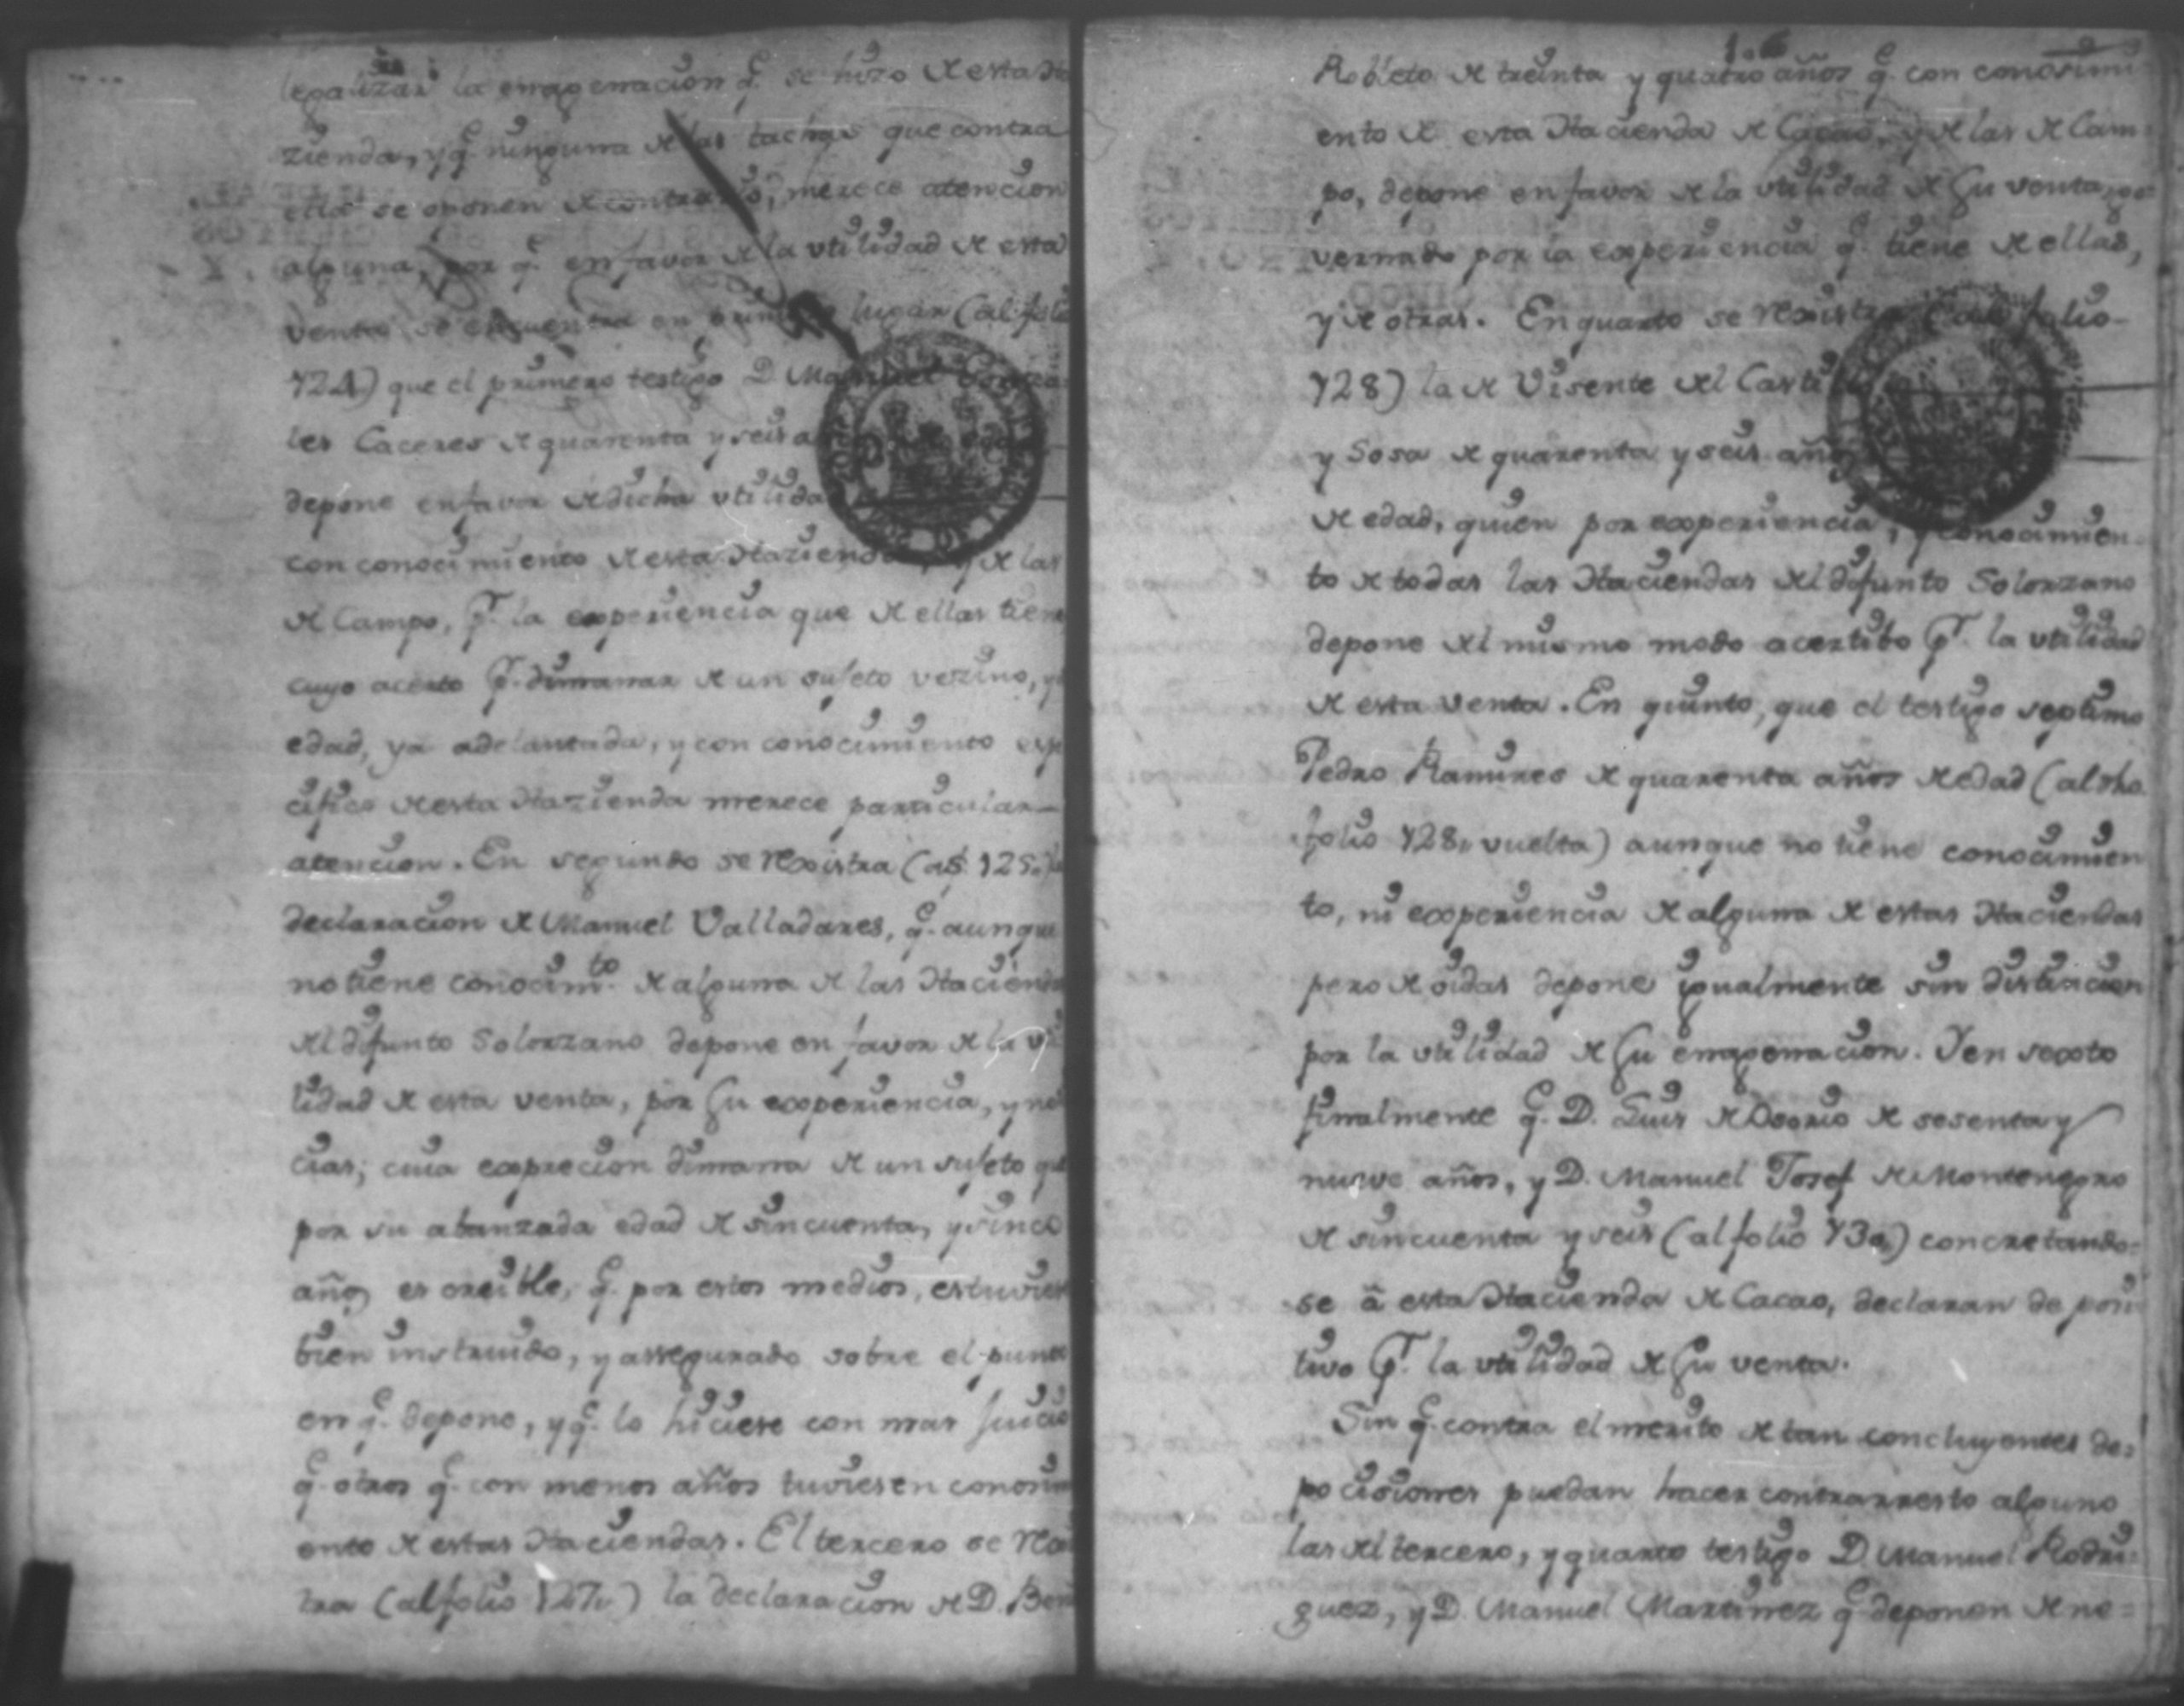 legalizar la enagenacion q.e se hizo de esta Ha
zienda, y q.e ninguna de las tachas que contra
ella se oponen de contrario, merece atencion
alguna, por q.e en favor de la vtilidad de esta
venta se encuentra en primer lugar (al folio
124) que el primero testigo D. Manuel Gonza
les Caceres de quarenta y seis a
depone en favor de dicha vtilida
con conocimiento de esta Hazienda, y de las
de Campo, p.r la experiencia que de ellas tiene
cuyo acerto p.r dimanar de un sujeto vezino, y
edad, ya adelantada, y con conocimiento espe
cifico de esta Hazienda merece particular
atencion. En segundo se rexistra (a f. 125.) la
declaracion de Manuel Valladares, q.e aunque
no tiene conocim.to de alguna de las Haciendas
del difunto Solorzano depone en favor de la vti
lidad de esta venta, por su experiencia, y noti
cias; cuia exprecion dimana de un sujeto que
por su abanzada edad de sincuenta, y sinco
años es creible, q.e por estos medios, estuviese
bien instruido, y assegurado sobre el punto
en q.e depone, y q.e lo hiciese con mas juicio
q.e otros q.e con menos años tuviesen conosim
ento de estas Haciendas. El tercero se rexis
tra (al folio 127.) la declaracion de D. Beni
Robleto de treinta y quatro años q.e con conosimi
ento de esta Hacienda de Cacao, y de las de Cam=
po, depone en favor de la vtilidad de su venta, go=
vernado por la experiencia q.e tiene de ellas,
y de otras. En quarto se rexistra (al folio
128) la de Visente del Casti
y Sosa de quarenta y seis años
de edad, quien por experiencia, y conocimien=
to de todas las Haciendas del difunto Solorzano
depone del mismo modo acertibo p.r la vtilidad
de esta venta. En quinto, que el testigo septimo
Pedro Ramires de quarenta años de edad (al dho.
folio 128, vuelta) aunque no tiene conocimien
to, ni experiencia de alguna de estas Haciendas
pero de oidas depone igualmente sin distincion
por la vtilidad de su enagenacion. Y en sexto
finalmente q.e D. Luis de Osorio de sesenta y
nueve años, y D. Manuel Josef de Montenegro
de sincuenta y seis (al folio 130,) concretando=
se â esta Hacienda de Cacao, declaran de posi
tivo p.r la vtilidad de su venta.
Sin q.e contra el merito de tan concluyentes de=
pocisiones puedan hacer contrarresto alguno
las del tercero, y quarto testigo D. Manuel Rodri=
guez, y D. Manuel Martinez q.e deponen de ne=